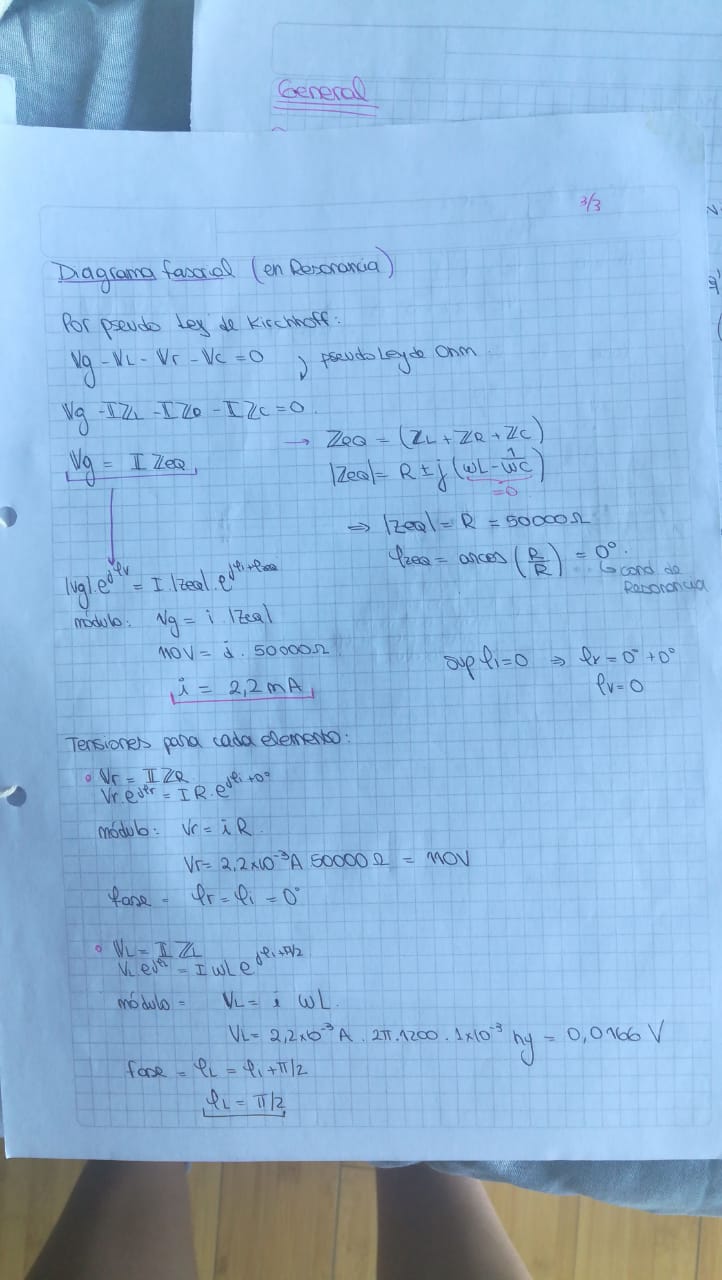 General
3/3
Diagrama fasorial (en Resonancia)
Por pseudo Ley de Kirchhoff:
Vg - VL - Vr - Vc = 0 ) pseudo Ley de Ohm
Vg - I ZL - I ZR - I ZC = 0
Vg = I Zeq
→ Zeq = (ZL + ZR + ZC)
|Zeq| = R ± j (wL - 1/wC)
=0
⇒ |Zeq| = R = 50000Ω
φzeq = arccos (R/R) = 0°.
↳ cond de Resonancia
|Vg|.e^jφv = I.|Zeq|.e^jφi+φzeq
módulo: Vg = i |Zeq|
110V = i . 50000Ω
i = 2,2 mA
sup φi=0 ⇒ φv = 0° + 0°
φv = 0
Tensiones para cada elemento:
• Vr = I ZR
Vr.e^jφr = I R.e^jφi+0°
módulo: Vr = i R
Vr = 2,2x10^-3 A 50000Ω = 110V
fase = φr = φi = 0°
• VL = I ZL
VL e^jφL = I wL e^jφi+π/2
módulo = VL = i wL
VL = 2,2x10^-3 A . 2π.1200 . 1x10^-3 hy = 0,0166 V
fase = φL = φi + π/2
φL = π/2